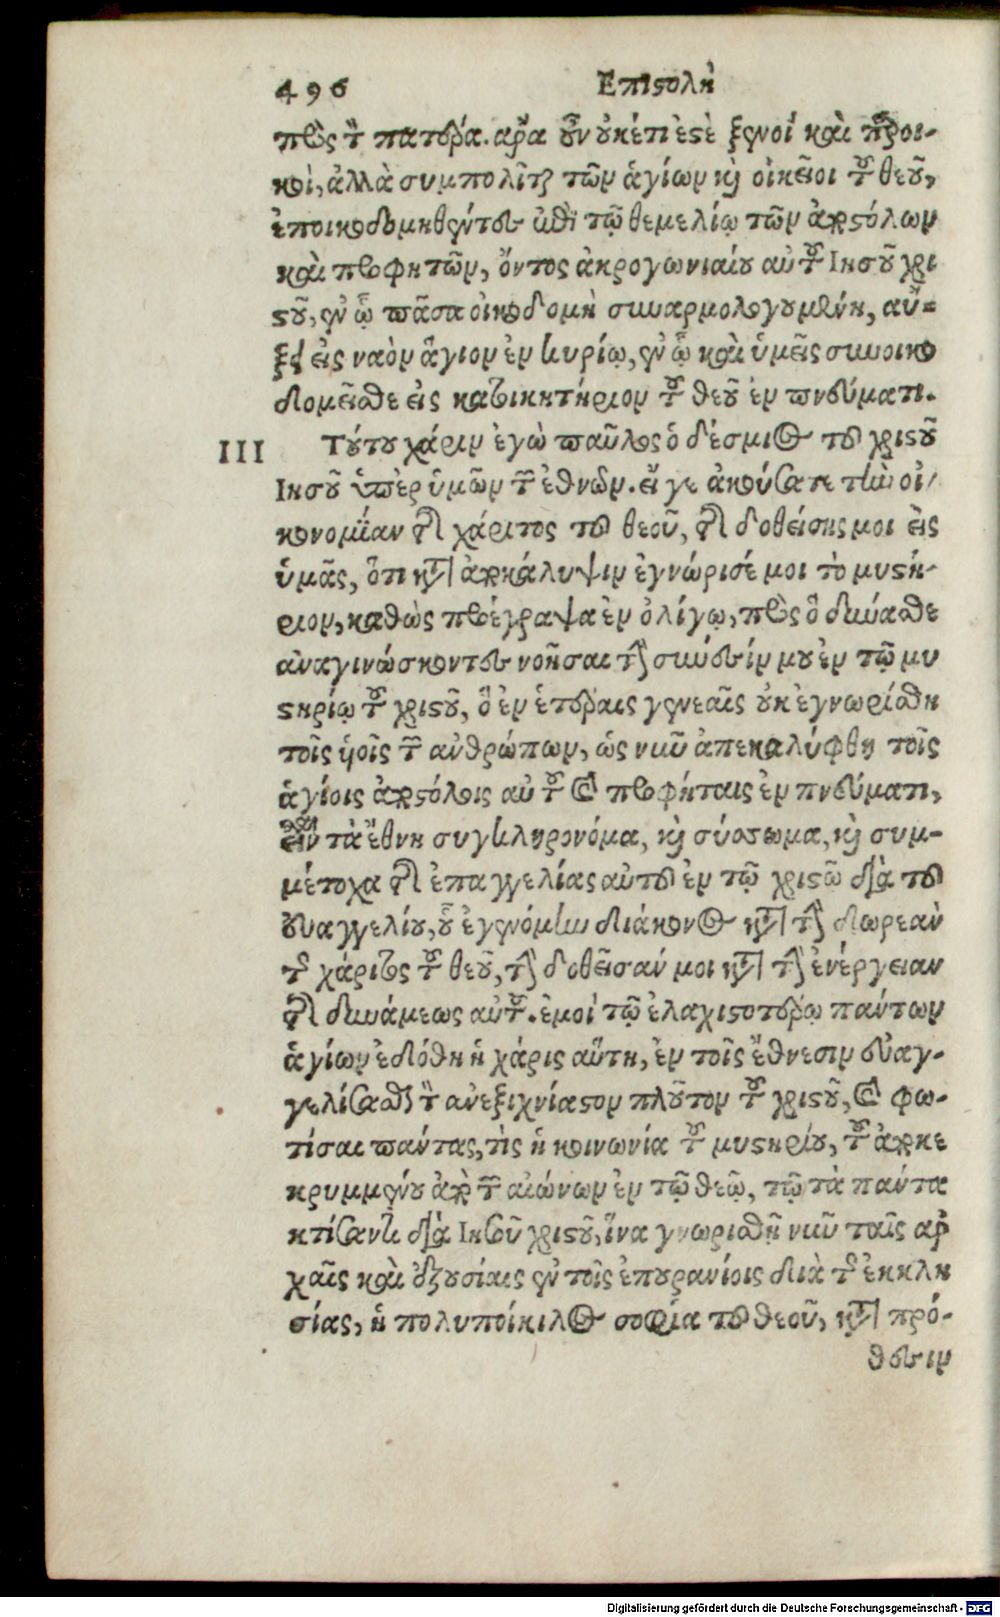 496 Επιςολὴ
πρὸς τὸν πατέρα. ἄρα οὖν οὐκέτι ἐςὲ ξένοι καὶ πάροι-
κοι, ἀλλὰ συμπολῖται τῶν ἁγίων καὶ οἰκεῖοι τοῦ θεοῦ,
ἐποικοδομηθέντες ἐπὶ τῷ θεμελίῳ τῶν ἀποςόλων
καὶ προφητῶν, ὄντος ἀκρογωνιαίου αὐτοῦ Ιησοῦ χρι
ςοῦ, ἐν ᾧ πᾶσα οἰκοδομὴ συναρμολογουμένη, αὔ-
ξει εἰς ναὸν ἅγιον ἐν κυρίῳ, ἐν ᾧ καὶ ὑμεῖς συνοικο
δομεῖσθε εἰς κατοικητήριον τοῦ θεοῦ ἐν πνεύματι.
III Τούτου χάριν ἐγὼ παῦλος ὁ δέσμιος τοῦ χριςοῦ
Ιησοῦ ὑπὲρ ὑμῶν τῶν ἐθνῶν. εἴ γε ἀκούσατε τὴν οἰ-
κονομίαν τῆς χάριτος τοῦ θεοῦ, τῆς δοθείσης μοι εἰς
ὑμᾶς, ὅτι κατὰ ἀποκάλυψιν ἐγνώρισέ μοι τὸ μυςή-
ριον, καθὼς προέγραψα ἐν ὀλίγῳ, πρὸς ὃ δύνασθε
ἀναγινώσκοντες νοῆσαι τὴν σύνεσίν μου ἐν τῷ μυ
ςηρίῳ τοῦ χριςοῦ, ὃ ἐν ἑτέραις γενεαῖς οὐκ ἐγνωρίσθη
τοῖς ὑοῖς τῶν ἀνθρώπων, ὡς νῦν ἀπεκαλύφθη τοῖς
ἁγίοις ἀποςόλοις αὐτοῦ καὶ προφήταις ἐν πνεύματι,
εἶναι τὰ ἔθνη συγκληρονόμα, καὶ σύσσωμα, καὶ συμ-
μέτοχα τῆς ἐπαγγελίας αὐτοῦ ἐν τῷ χριςῷ διὰ τοῦ
εὐαγγελίου, οὗ ἐγενόμην διάκονος κατὰ τὴν δωρεὰν
τῆς χάριτος τοῦ θεοῦ, τὴν δοθεῖσάν μοι κατὰ τὴν ἐνέργειαν
τῆς δυνάμεως αὐτοῦ. ἐμοὶ τῷ ἐλαχιςοτέρῳ πάντων
ἁγίων ἐδόθη ἡ χάρις αὕτη, ἐν τοῖς ἔθνεσιν εὐαγ-
γελίσασθαι τὸν ἀνεξιχνίαςον πλοῦτον τοῦ χριςοῦ, καὶ φω-
τίσαι πάντας, τὶς ἡ κοινωνία τοῦ μυςηρίου, τοῦ ἀποκε
κρυμμένου ἀπὸ τῶν αἰώνων ἐν τῷ θεῷ, τῷ τὰ πάντα
κτίσαντι διὰ Ιησοῦ χριςοῦ, ἵνα γνωρισθῇ νῦν ταῖς ἀρ
χαῖς καὶ ἐξουσίαις ἐν τοῖς ἐπουρανίοις διὰ τῆς ἐκκλη
σίας, ἡ πολυποίκιλος σοφία τοῦ θεοῦ, κατὰ πρό-
θεσιν
Digitalisierung gefördert durch die Deutsche Forschungsgemeinschaft - DFG